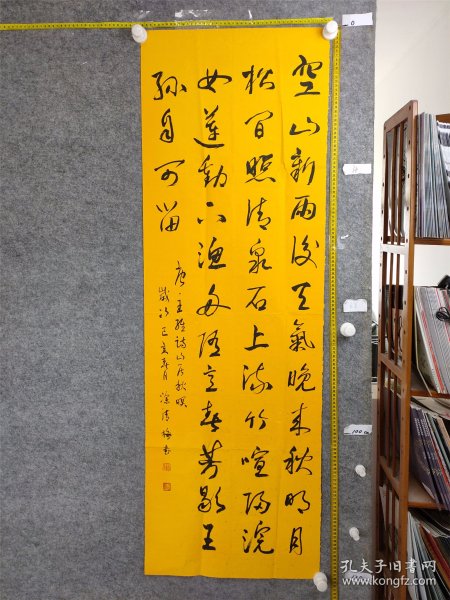 空山新雨後天氣晚来秋明月
松间照清泉石上流竹喧歸浣
女蓮動下漁舟随意春芳歇王
孫自可留
唐王維詩山居秋暝
歲次己亥春月
0
100cm
孔夫子旧书网
www.kongfz.com